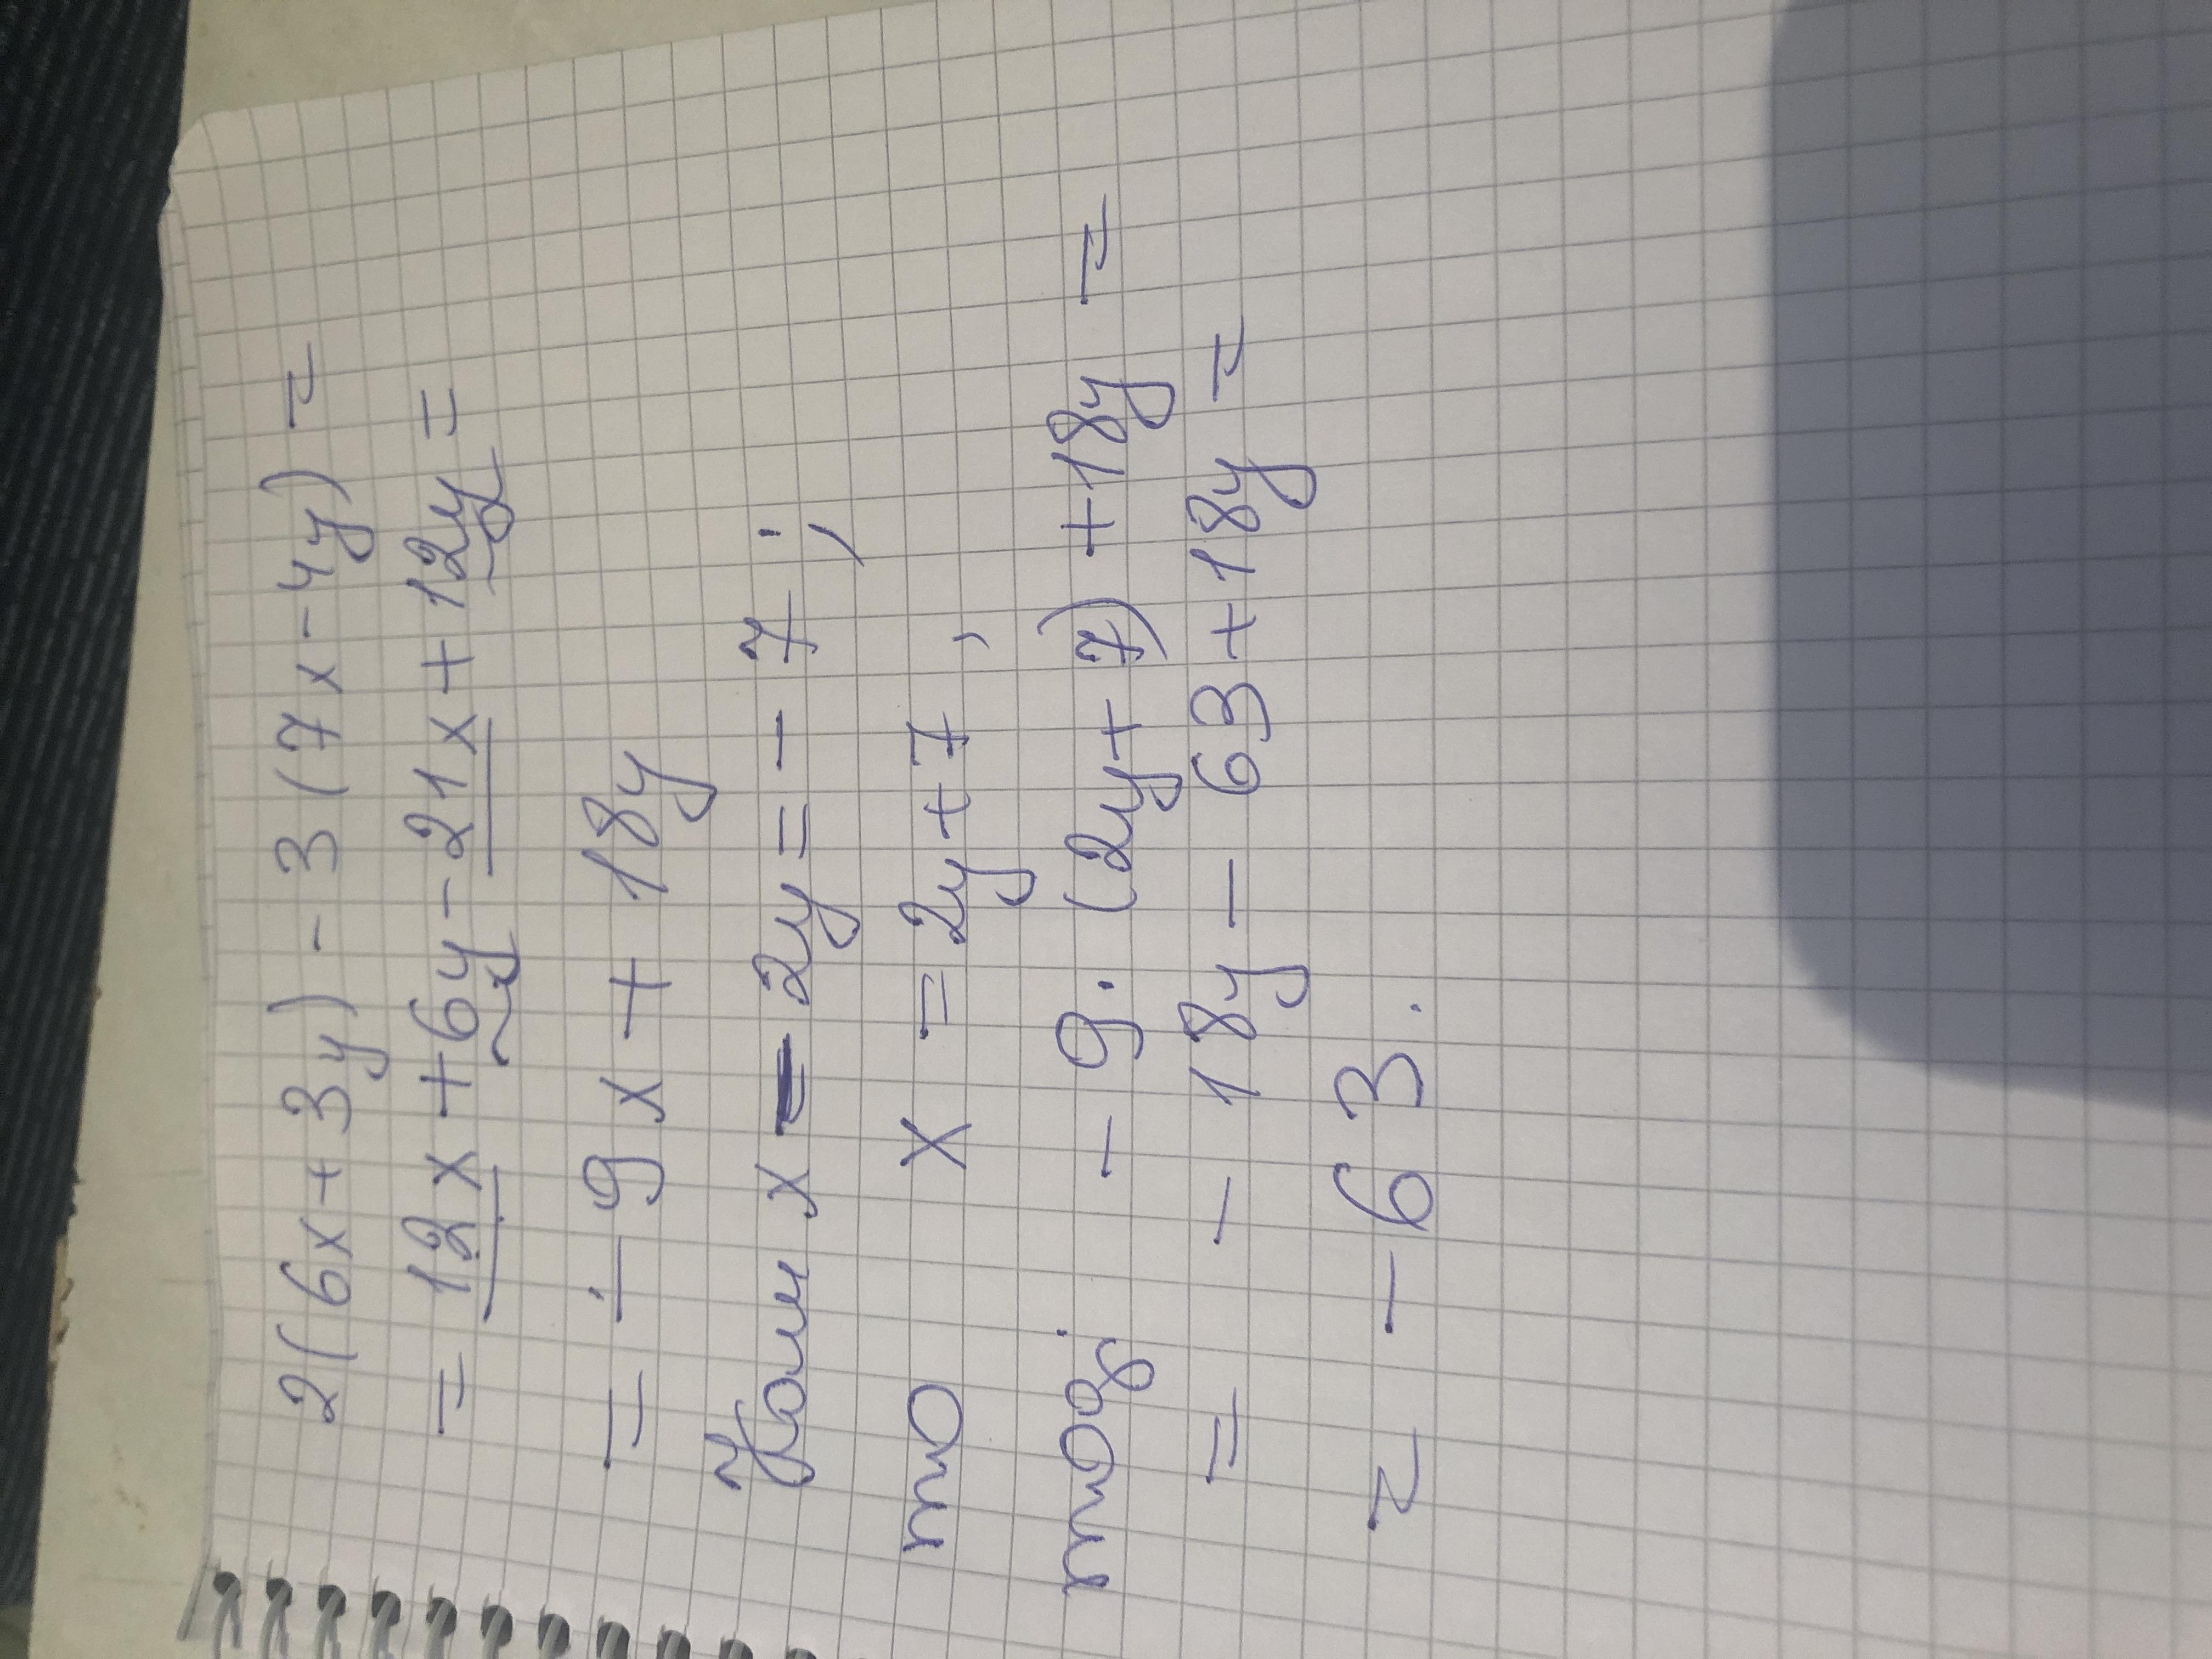 2(6x+3y)-3(7x-4y)=
=12x+6y-21x+12y=
=-9x+18y
Коли x-2y=-7;
то x=2y+7,
тоді -9·(2y+7)+18y=
=-18y-63+18y=
=-63.